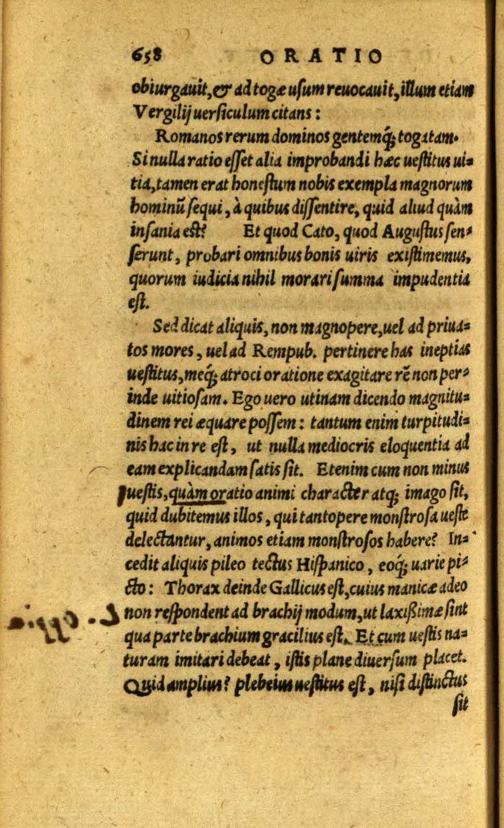 658 ORATIO
obiurgauit, & ad togæ usum reuocauit, illum etiam
Vergilij uersiculum citans:
Romanos rerum dominos gentemq́; togatam.
Si nulla ratio esset alia improbandi hæc uestitus ui=
tia, tamen erat honestum nobis exempla magnorum
hominũ sequi, à quibus dissentire, quid aliud quàm
insania est? Et quod Cato, quod Augustus sen=
serunt, probari omnibus bonis uiris existimemus,
quorum iudicia nihil morari summa impudentia
est.
Sed dicat aliquis, non magnopere, uel ad priua=
tos mores, uel ad Rempub. pertinere has ineptias
uestitus, meq́; atroci oratione exagitare rẽ non per=
inde uitiosam. Ego uero utinam dicendo magnitu=
dinem rei æquare possem: tantum enim turpitudi=
nis hac in re est, ut nulla mediocris eloquentia ad
eam explicandam satis sit. Etenim cum non minus
uestis, quàm oratio animi character atq; imago sit,
quid dubitemus illos, qui tantopere monstrosa ueste
delectantur, animos etiam monstrosos habere? In=
cedit aliquis pileo tectus Hispanico, eoq́; uarie pi=
cto: Thorax deinde Gallicus est, cuius manicæ adeo
non respondent ad brachij modum, ut laxißimæ sint
qua parte brachium gracilius est. Et cum uestis na=
turam imitari debeat, istis plane diuersum placet.
Quid amplius? plebeius uestitus est, nisi distinctus
sit